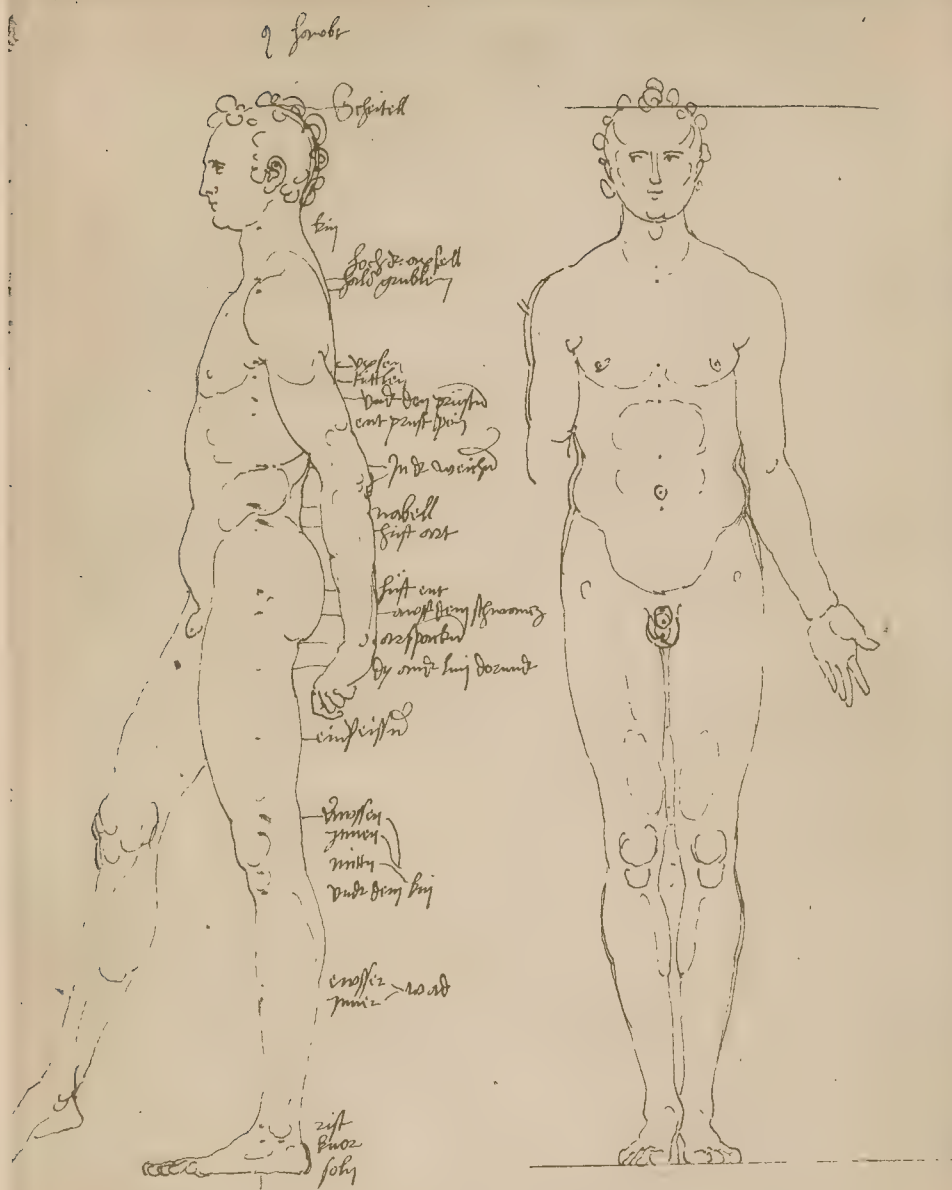 9 haubt
Scheitell
kin
hoch der axsell
hals grublein
üxsen
tüttlen
vndr den prüsten
ent prust pein
In der weichn
nabell
hüft ort
hüft ent
awss dem schwantz
arspackn
dy andr lini dorundr
einseissn
awssen
jnnen
mittn
vndr dem kni
ewsser
jnner wad
rist
knor
soln